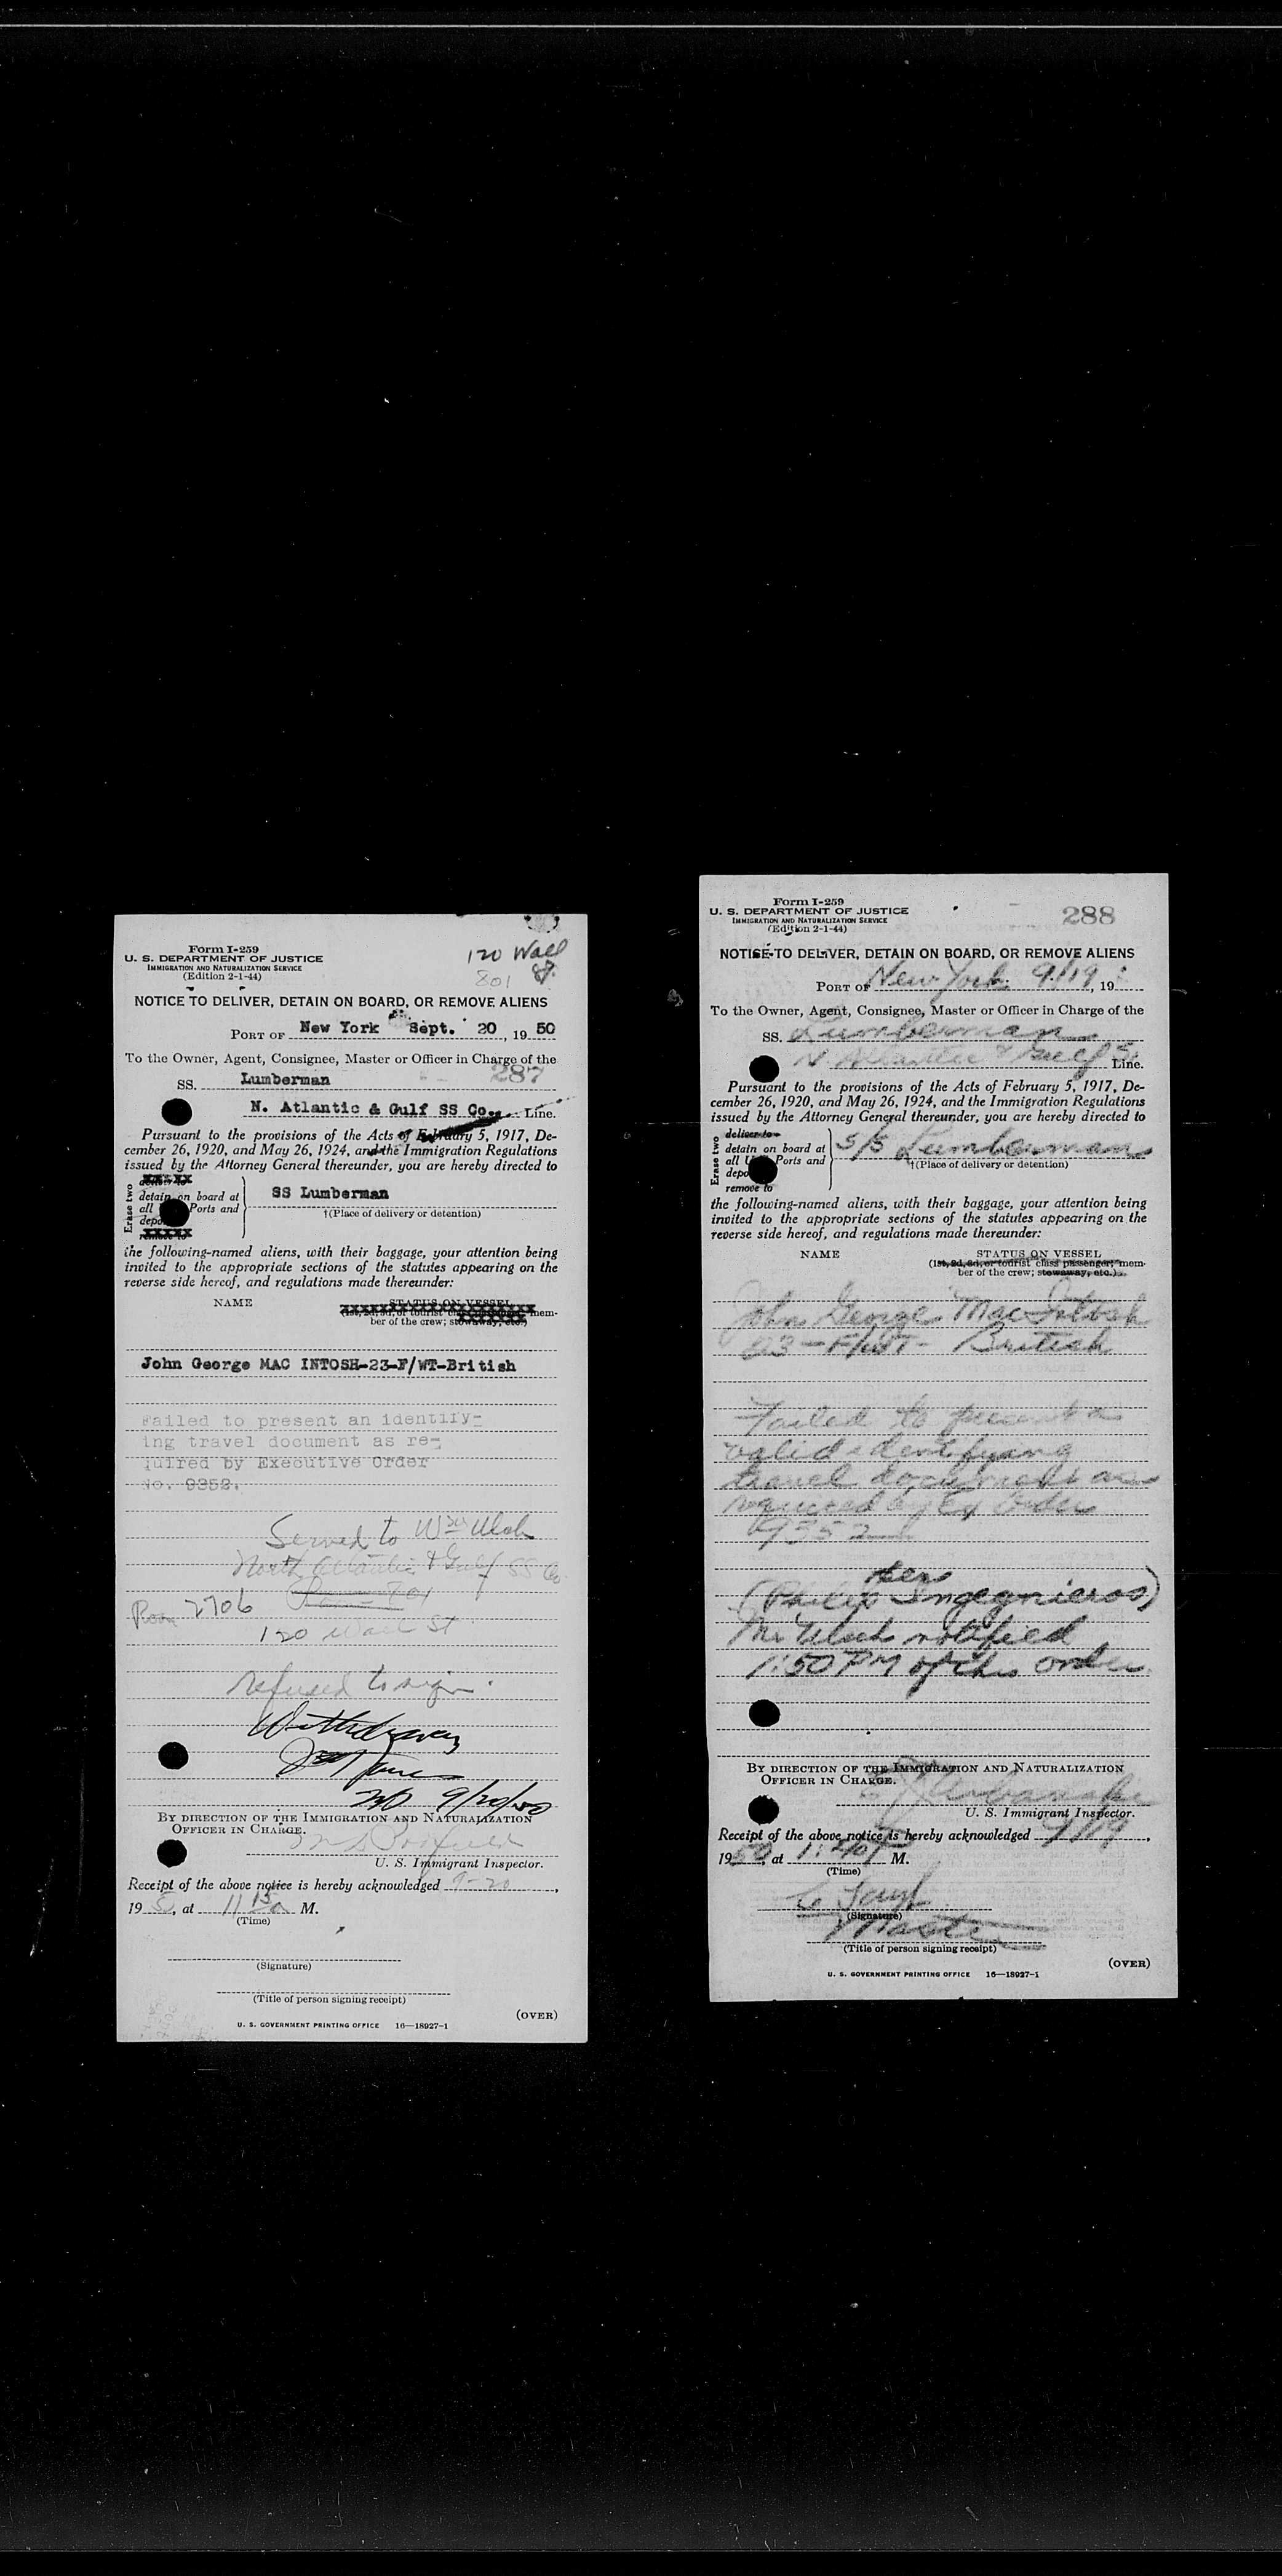 Form I-259
U. S. DEPARTMENT OF JUSTICE
IMMIGRATION AND NATURALIZATION SERVICE
(Edition 2-1-44)
120 Wall
St.
801
NOTICE TO DELIVER, DETAIN ON BOARD, OR REMOVE ALIENS
PORT OF New York Sept. 20, 1950
To the Owner, Agent, Consignee, Master or Officer in Charge of the
287
SS. Lumberman
N. Atlantic & Gulf SS Co., Line.
Pursuant to the provisions of the Acts of February 5, 1917, De-
cember 26, 1920, and May 26, 1924, and the Immigration Regulations
issued by the Attorney General thereunder, you are hereby directed to
Erase two
deliver to
detain on board at
all Ports and
depo
remove to
SS Lumberman
†(Place of delivery or detention)
the following-named aliens, with their baggage, your attention being
invited to the appropriate sections of the statutes appearing on the
reverse side hereof, and regulations made thereunder:
NAME STATUS ON VESSEL
(1st, 2d, 3d, or tourist class passenger; mem-
ber of the crew; stowaway, etc.)
John George MAC INTOSH-23-F/WT-British
Failed to present an identify-
ing travel document as re-
quired by Executive Order
No. 9352.
Served to Wm Uloch
North Atlantic & Gulf SS Co.
Room 2706 Room 801
120 Wall St
Refused to sign.
Withdrawn
9/20/50
BY DIRECTION OF THE IMMIGRATION AND NATURALIZATION
OFFICER IN CHARGE.
U. S. Immigrant Inspector.
Receipt of the above notice is hereby acknowledged 9-20,
195, at 11 15 a M.
(Time)
(Signature)
(Title of person signing receipt)
(OVER)
U. S. GOVERNMENT PRINTING OFFICE 16—18927-1
Form I-259
U. S. DEPARTMENT OF JUSTICE
IMMIGRATION AND NATURALIZATION SERVICE
(Edition 2-1-44)
288
NOTICE TO DELIVER, DETAIN ON BOARD, OR REMOVE ALIENS
PORT OF New York 9/19, 19
To the Owner, Agent, Consignee, Master or Officer in Charge of the
SS. Lumberman
N Atlantic & Gulf S. Line.
Pursuant to the provisions of the Acts of February 5, 1917, De-
cember 26, 1920, and May 26, 1924, and the Immigration Regulations
issued by the Attorney General thereunder, you are hereby directed to
Erase two
deliver to
detain on board at
all U Ports and
depo
remove to
S/S Lumberman
†(Place of delivery or detention)
the following-named aliens, with their baggage, your attention being
invited to the appropriate sections of the statutes appearing on the
reverse side hereof, and regulations made thereunder:
NAME STATUS ON VESSEL
(1st, 2d, 3d, or tourist class passenger; mem-
ber of the crew; stowaway, etc.)
John George MacIntosh
23-F/WT- British
Failed to present a
valid identifying
travel document as
required by Ex Order
9352
(Philip Ingegnieros)
Mr Uloch notified
1:50 PM of this order.
BY DIRECTION OF THE IMMIGRATION AND NATURALIZATION
OFFICER IN CHARGE.
U. S. Immigrant Inspector.
Receipt of the above notice is hereby acknowledged 9/19,
1950, at 1:40 P M.
(Time)
(Signature)
Master
(Title of person signing receipt)
(OVER)
U. S. GOVERNMENT PRINTING OFFICE 16—18927-1